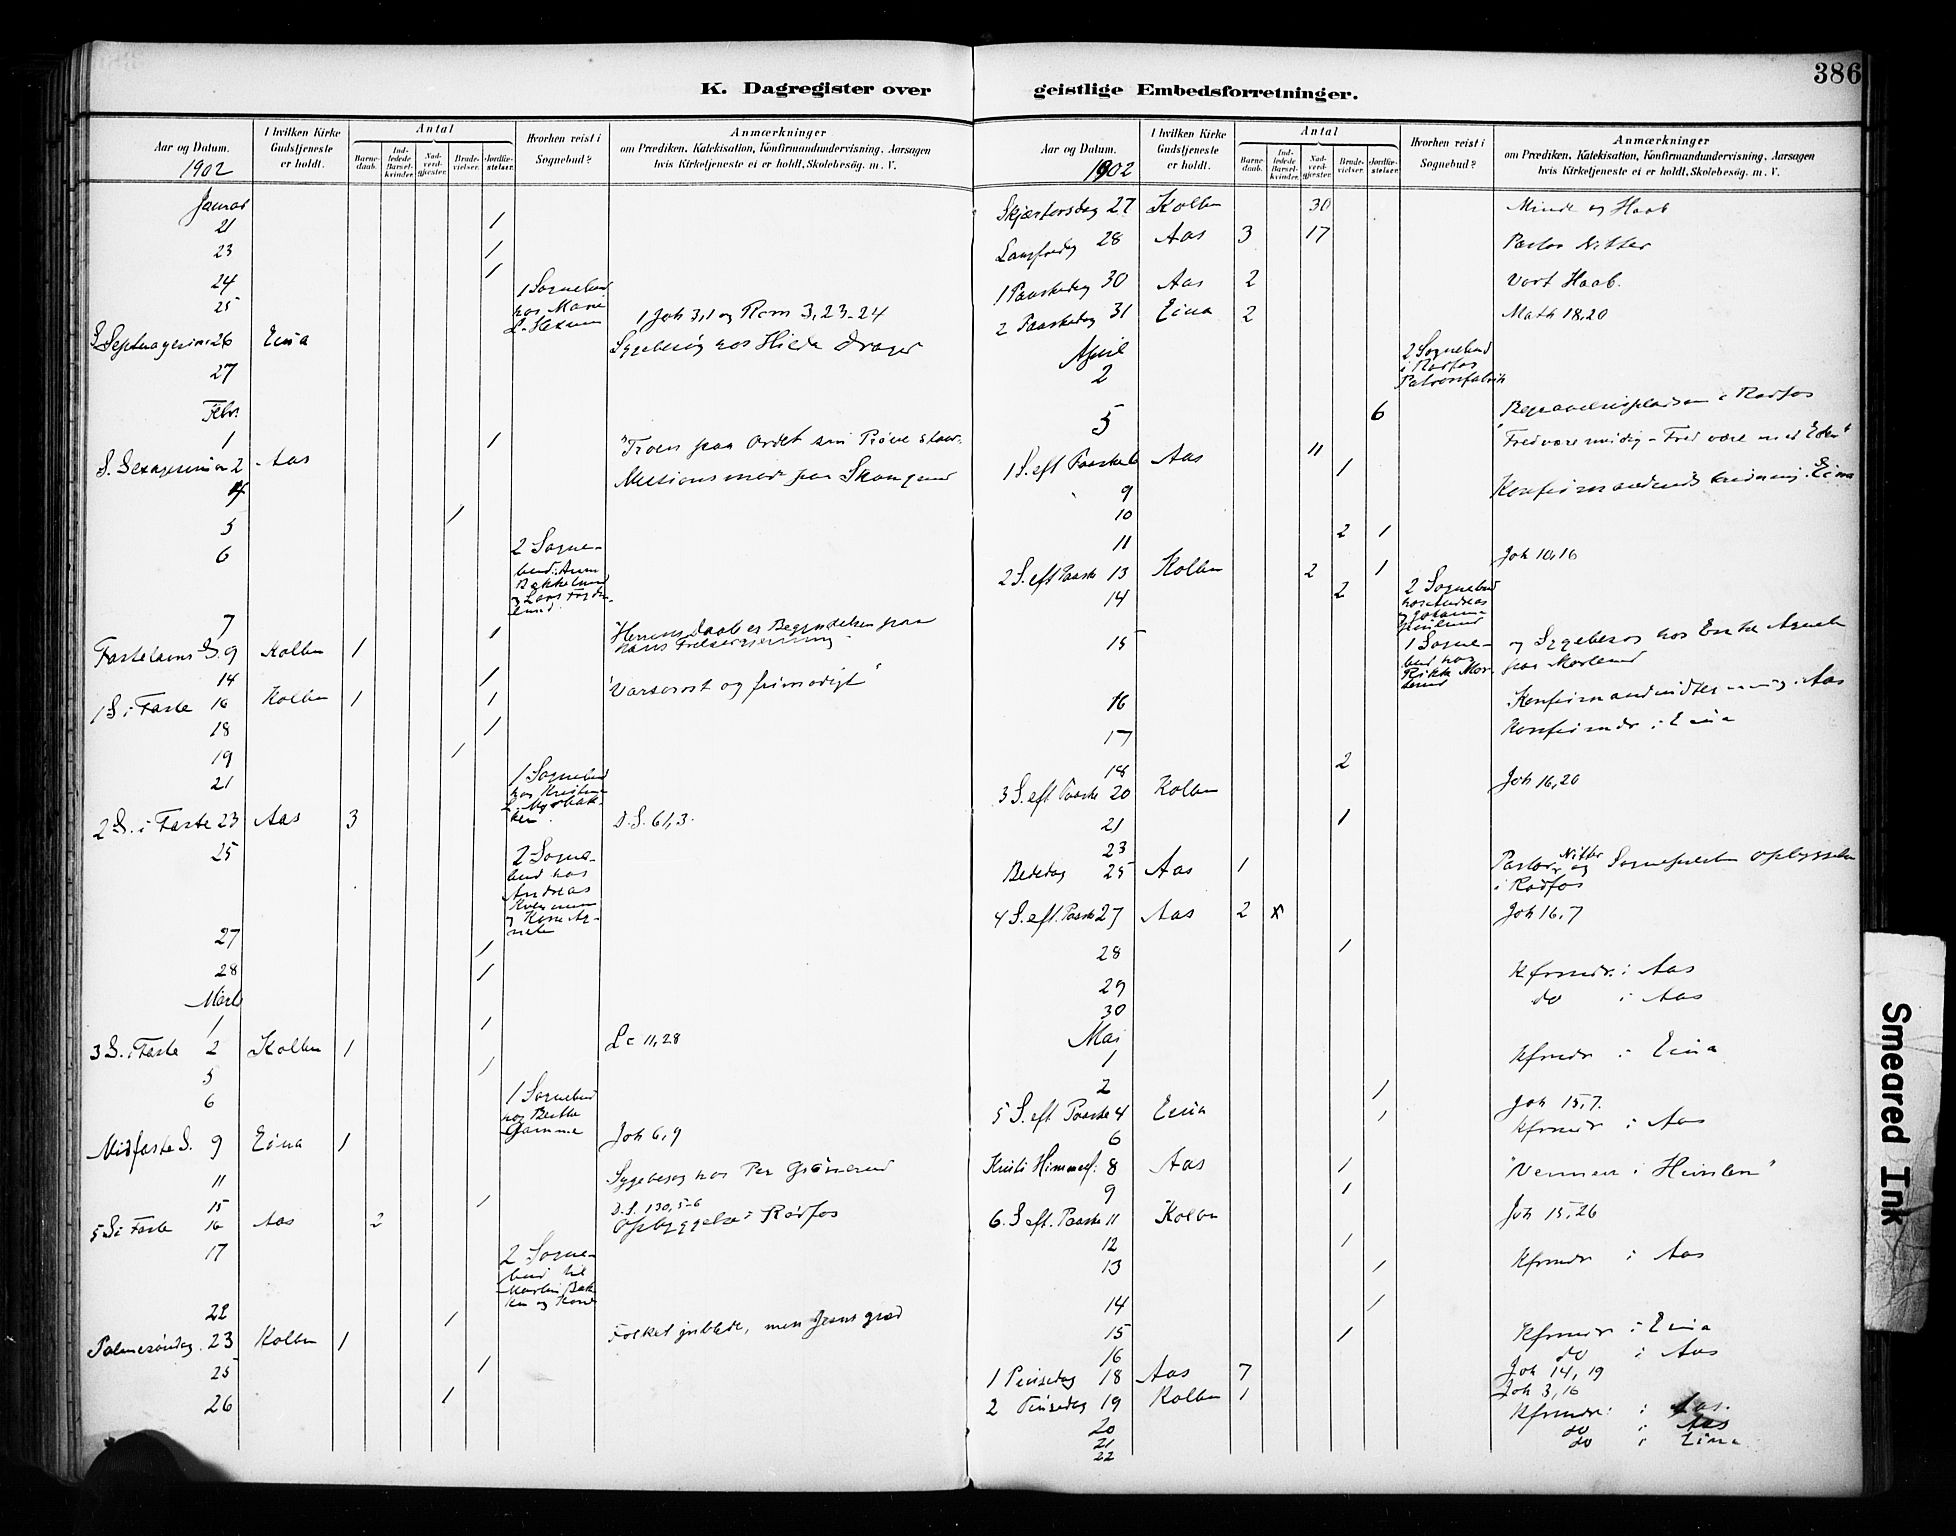 386
K. Dagregister over geistlige Embedsforretninger.
Aar og Datum.
I hvilken Kirke Gudstjeneste er holdt.
Antal
Barnedaab.
Indledede Barselkvinder.
Nadverdgjester.
Brudevielser.
Jordfæstelser.
Hvorhen reist i Sognebud?
Anmærkninger
om Prædiken, Katekisation, Konfirmandundervisning, Aarsagen
hvis Kirketjeneste ei er holdt, Skolebesøg. m. V.
1902
Januar
21 1
23 1
24 1
25 1 Sognebud hos Marie
S. Septuagesima 26 Eina 1 Joh 3,1 og Rom 3,23-24
27 Sygebesøg hos Hilda
Febr
1 1
S. Sexagesima 2 Aas "Troen paa Ordet sin Prøve
4 Missionsmøde paa
5 1
6 2 Sognebud: Anne Bakkelund og Lars
7 1
Fastelavns S. 9 Kolbu 1 "Herrens Daab er Begyndelsen paa hans Frelsergjerning
14 1
1 S. i Faste 16 Kolbu 1 1 "Varsomt og frimodigt"
18 1
19 1
21 1 Sognebud hos
2 S. i Faste 23 Aas 3 D. S. 61,3.
25 2 Sognebud hos Andreas
27 1
28 1
Marts
1 1
3 S. i Faste 2 Kolbu 1 Lc 11,28
5 1
6 1 Sognebud hos Berthe Gamme
Midfaste S. 9 Eina 1 Joh 6,9
11 Sygebesøg hos Per Grønerud
15 1
5 S. i Faste 16 Aas 2 D. S. 130,5-6
Opbyggelse i Rødfos
17 2 Sognebud til Martin Bakken og Kone
22 1
Palmesøndag 23 Kolbu 1 Folket jublede, men Jesus græd
25 1
26 1
Aar og Datum.
I hvilken Kirke Gudstjeneste er holdt.
Antal
Barnedaab.
Indledede Barselkvinder.
Nadverdgjester.
Brudevielser.
Jordfæstelser.
Hvorhen reist i Sognebud?
Anmærkninger
om Prædiken, Katekisation, Konfirmandundervisning, Aarsagen
hvis Kirketjeneste ei er holdt, Skolebesøg. m. V.
1902
Skjærtorsdag 27 Kolbu 30 Minde og Haab
Langfredag 28 Aas 3 17 Pastor Nitter
1 Paaskedag 30 Aas 2 Vort Haab.
2 Paaskedag 31 Eina 2 Math 18,20
April
2 2 Sognebud i Rødfos Patronfabrik
5 6 Begravelsespladsen i Rødfos
1 S. eft Paaske 6 Aas 11 "Fred være med dig - Fred være med Eder"
9 1 Konfirmandundervisning i Eina
10
11 2 1
2 S. eft Paaske 13 Kolbu 2 1 Joh 10,16
14 2 2 Sognebud hos Andreas og Johanne
15 1 Sognebud hos og Sygebesøg hos Enke Agnete
16 Konfirmandundervisning i Aas
17 Konfirmdr i Eina
18 2
3 S. eft Paaske 20 Kolbu Joh 16,20
21 1
23
Bededag 25 Aas 1 Pastor Nitter og Sognepresten Opbyggelse i Rødfos
4 S. eft. Paaske 27 Aas 2 x Joh 16,7
28 1
29 Kfrmdr. i Aas
30 do i Aas
Mai
1 Kfrmdr i Eina
2 1
5 S. eft Paaske 4 Eina 1 Joh 15,7.
6 Kfrmdr i Aas
Kristi Himmelf. 8 Aas 1 "Vennen i Himlen"
9 1
6. S eft. Paaske 11 Kolbu Joh 15,26
12 1
13 1 Kfrmdr i Aas
14 1
15 1 Kfrmdr i Eina
16 do i Aas
1 Pinsedag 18 Aas 7 Joh 14,19
2 Pinsedag 19 Kolbu 1 Joh 3,16
20 Kfrmdr. i Aas.
21 do i Aas
22 do i Eina
Smeared Ink